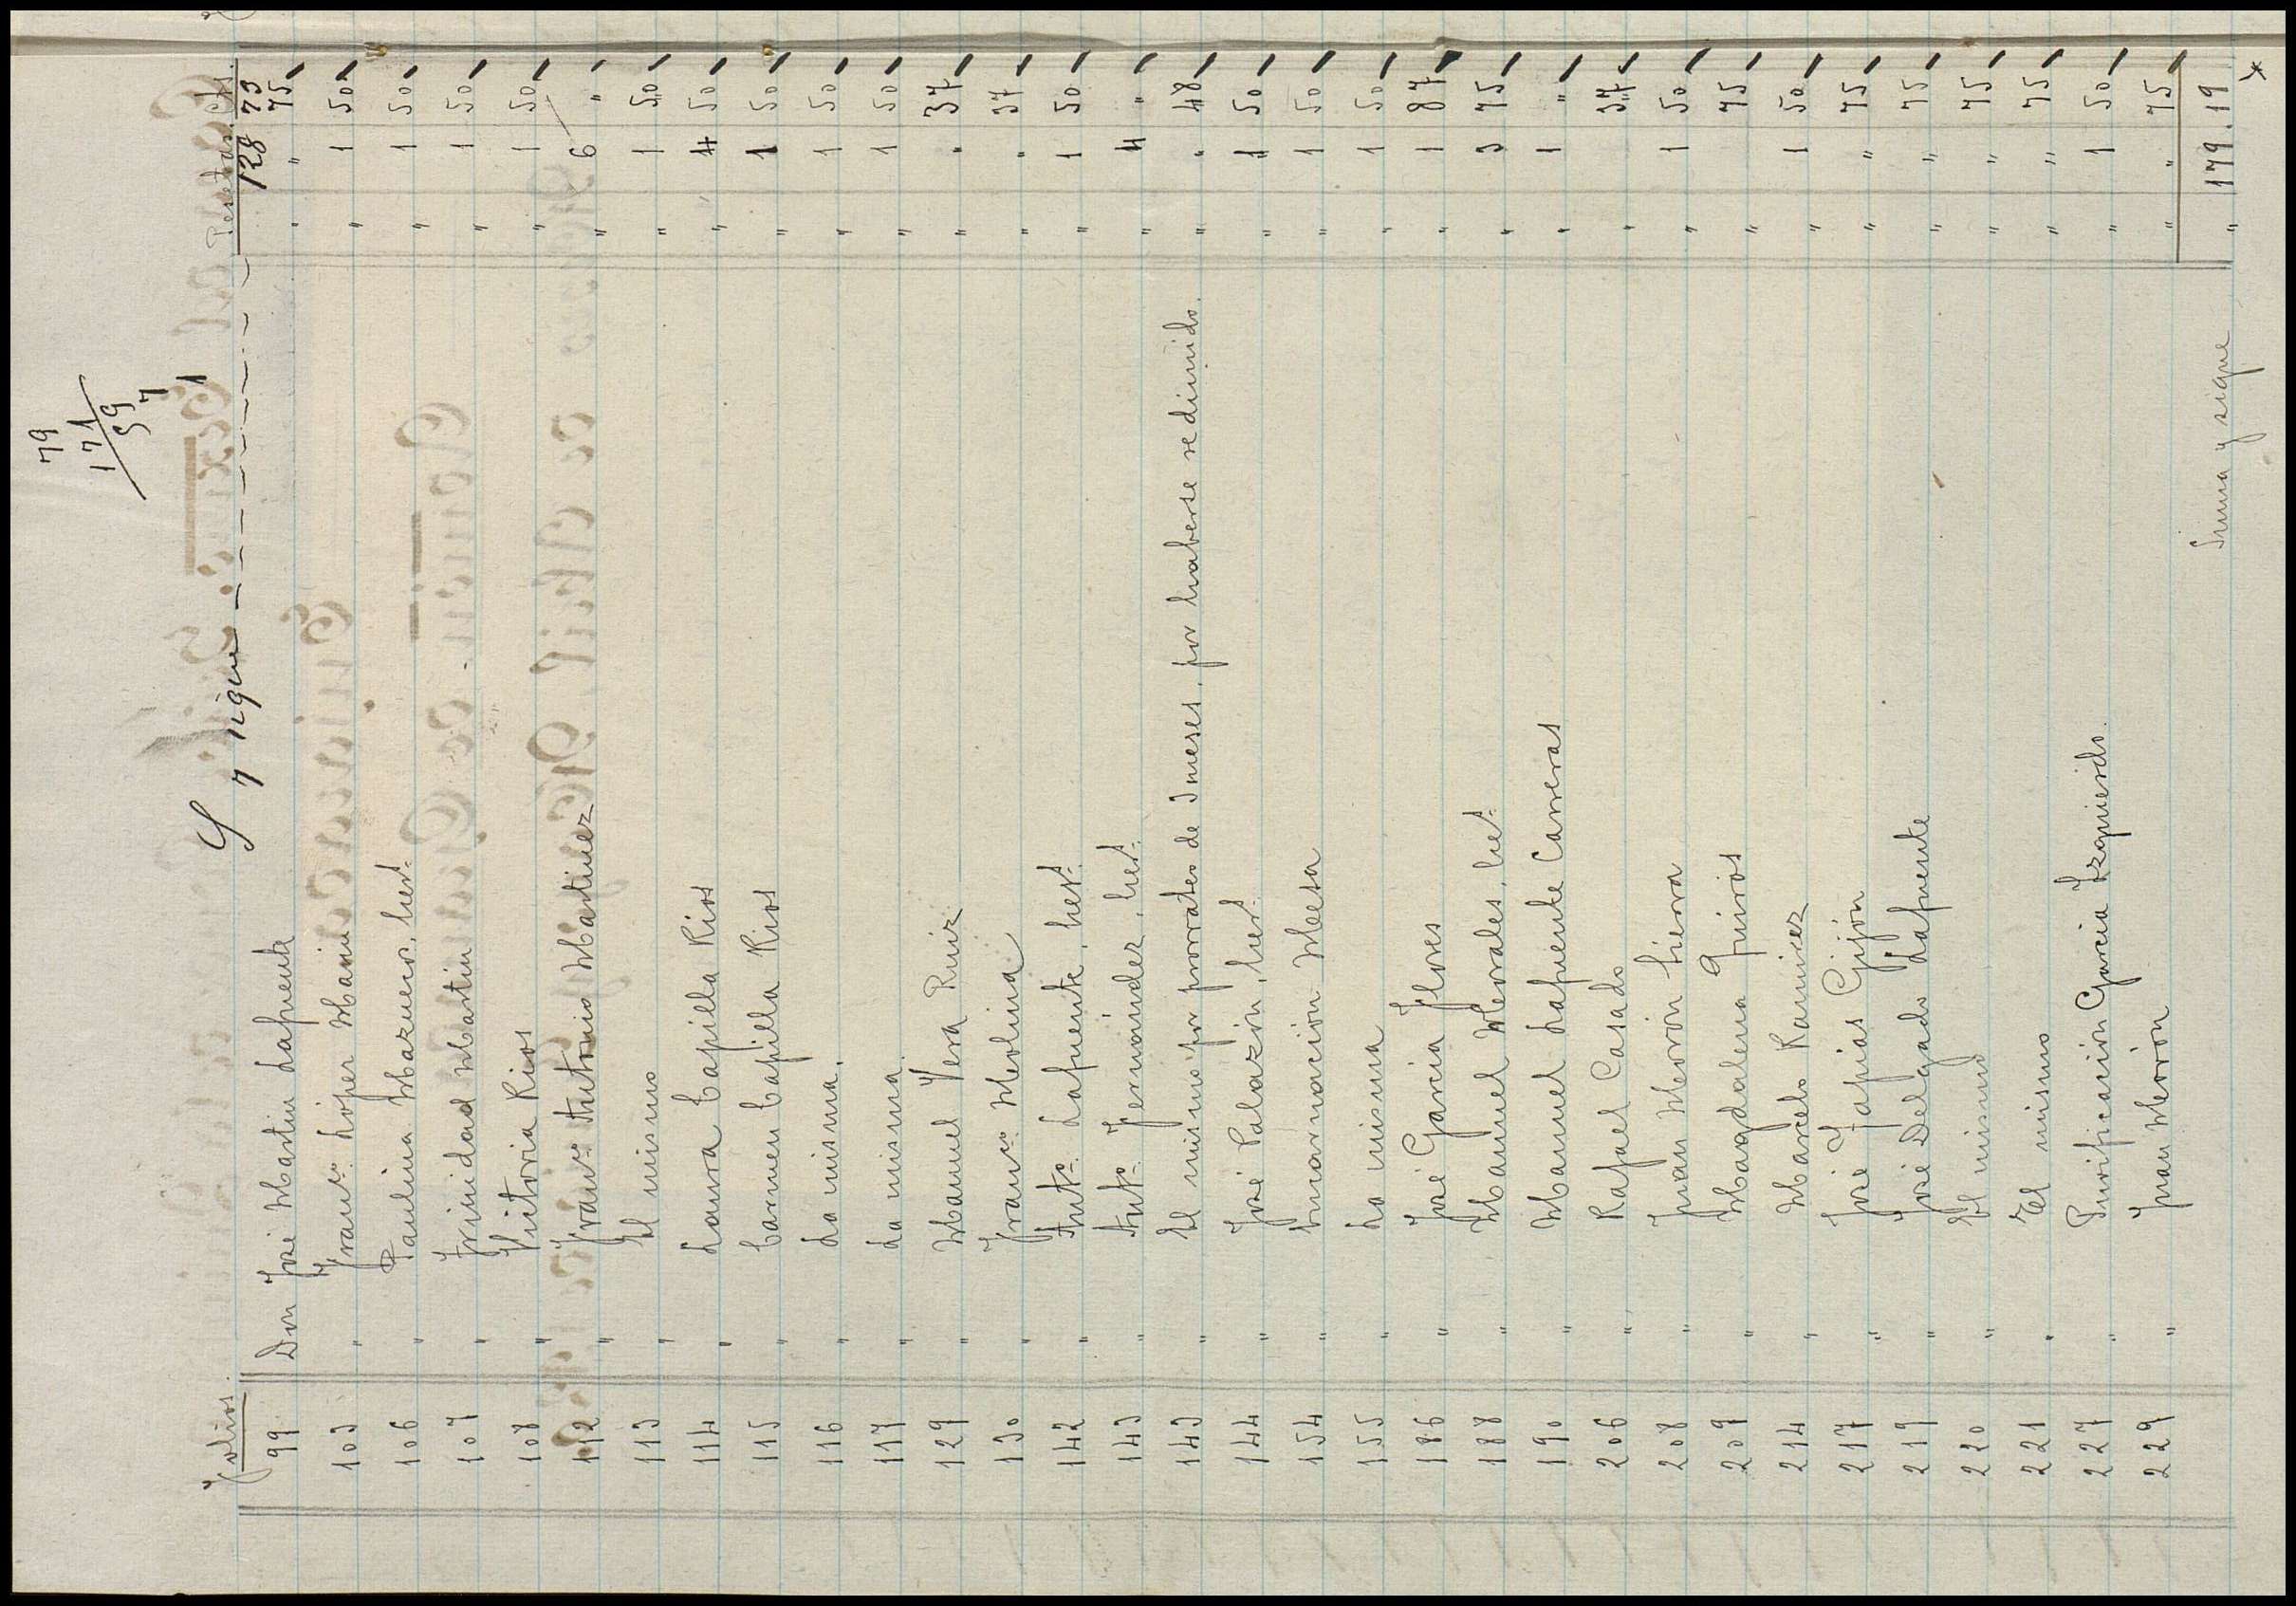 79
171
59
7
1
Y sigue
Folios. Pesetas. Cts.
128 73
99 Don José Martin Lafuente " " 75
103 " Franco. López Marin " 1 50
106 " Paulina Mazuecos, hers. " 1 50
107 " Trinidad Martin " 1 50
108 " Victoria Rios " 1 50
112 " Franco. Antonio Martinez " 6 "
113 " El mismo " 1 50
114 " Laura Capilla Rios " 4 50
115 " Carmen Capilla Rios " 1 50
116 " La misma. " 1 50
117 " La misma. " 1 50
129 " Manuel Vera Ruiz " " 37
130 " Franco. Molina " " 37
142 " Anto. Lafuente, hers. " 1 50
143 " Anto. Fernández, hers. " 4 "
143 " El mismo por prorrateo de 3 meses, por haberse redimido. " " 48
144 " José Palazón, hers. " 1 50
154 " Encarnación Mesa " 1 50
155 " La misma " 1 50
186 " José Garcia Flores " 1 87
188 " Manuel Morales, hers. " 3 75
190 " Manuel Lafuente Carreras " 1 "
206 " Rafael Casado " 37
208 " Juan Morón Sierra " 1 50
209 " Magdalena Quirós " 75
214 " Marcelo Ramirez " 1 50
217 " José Tapias Gijón " " 75
219 " José Delgado Lafuente " " 75
220 " El mismo " " 75
221 " El mismo " " 75
227 " Purificación Garcia Izquierdo. " 1 50
229 " Juan Morón " " 75
Suma y sigue " 179.19
x